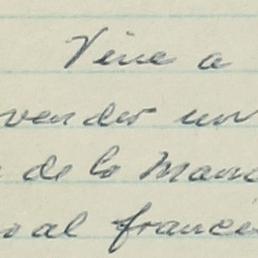 Vine a
vender un
de lo Man
al francé